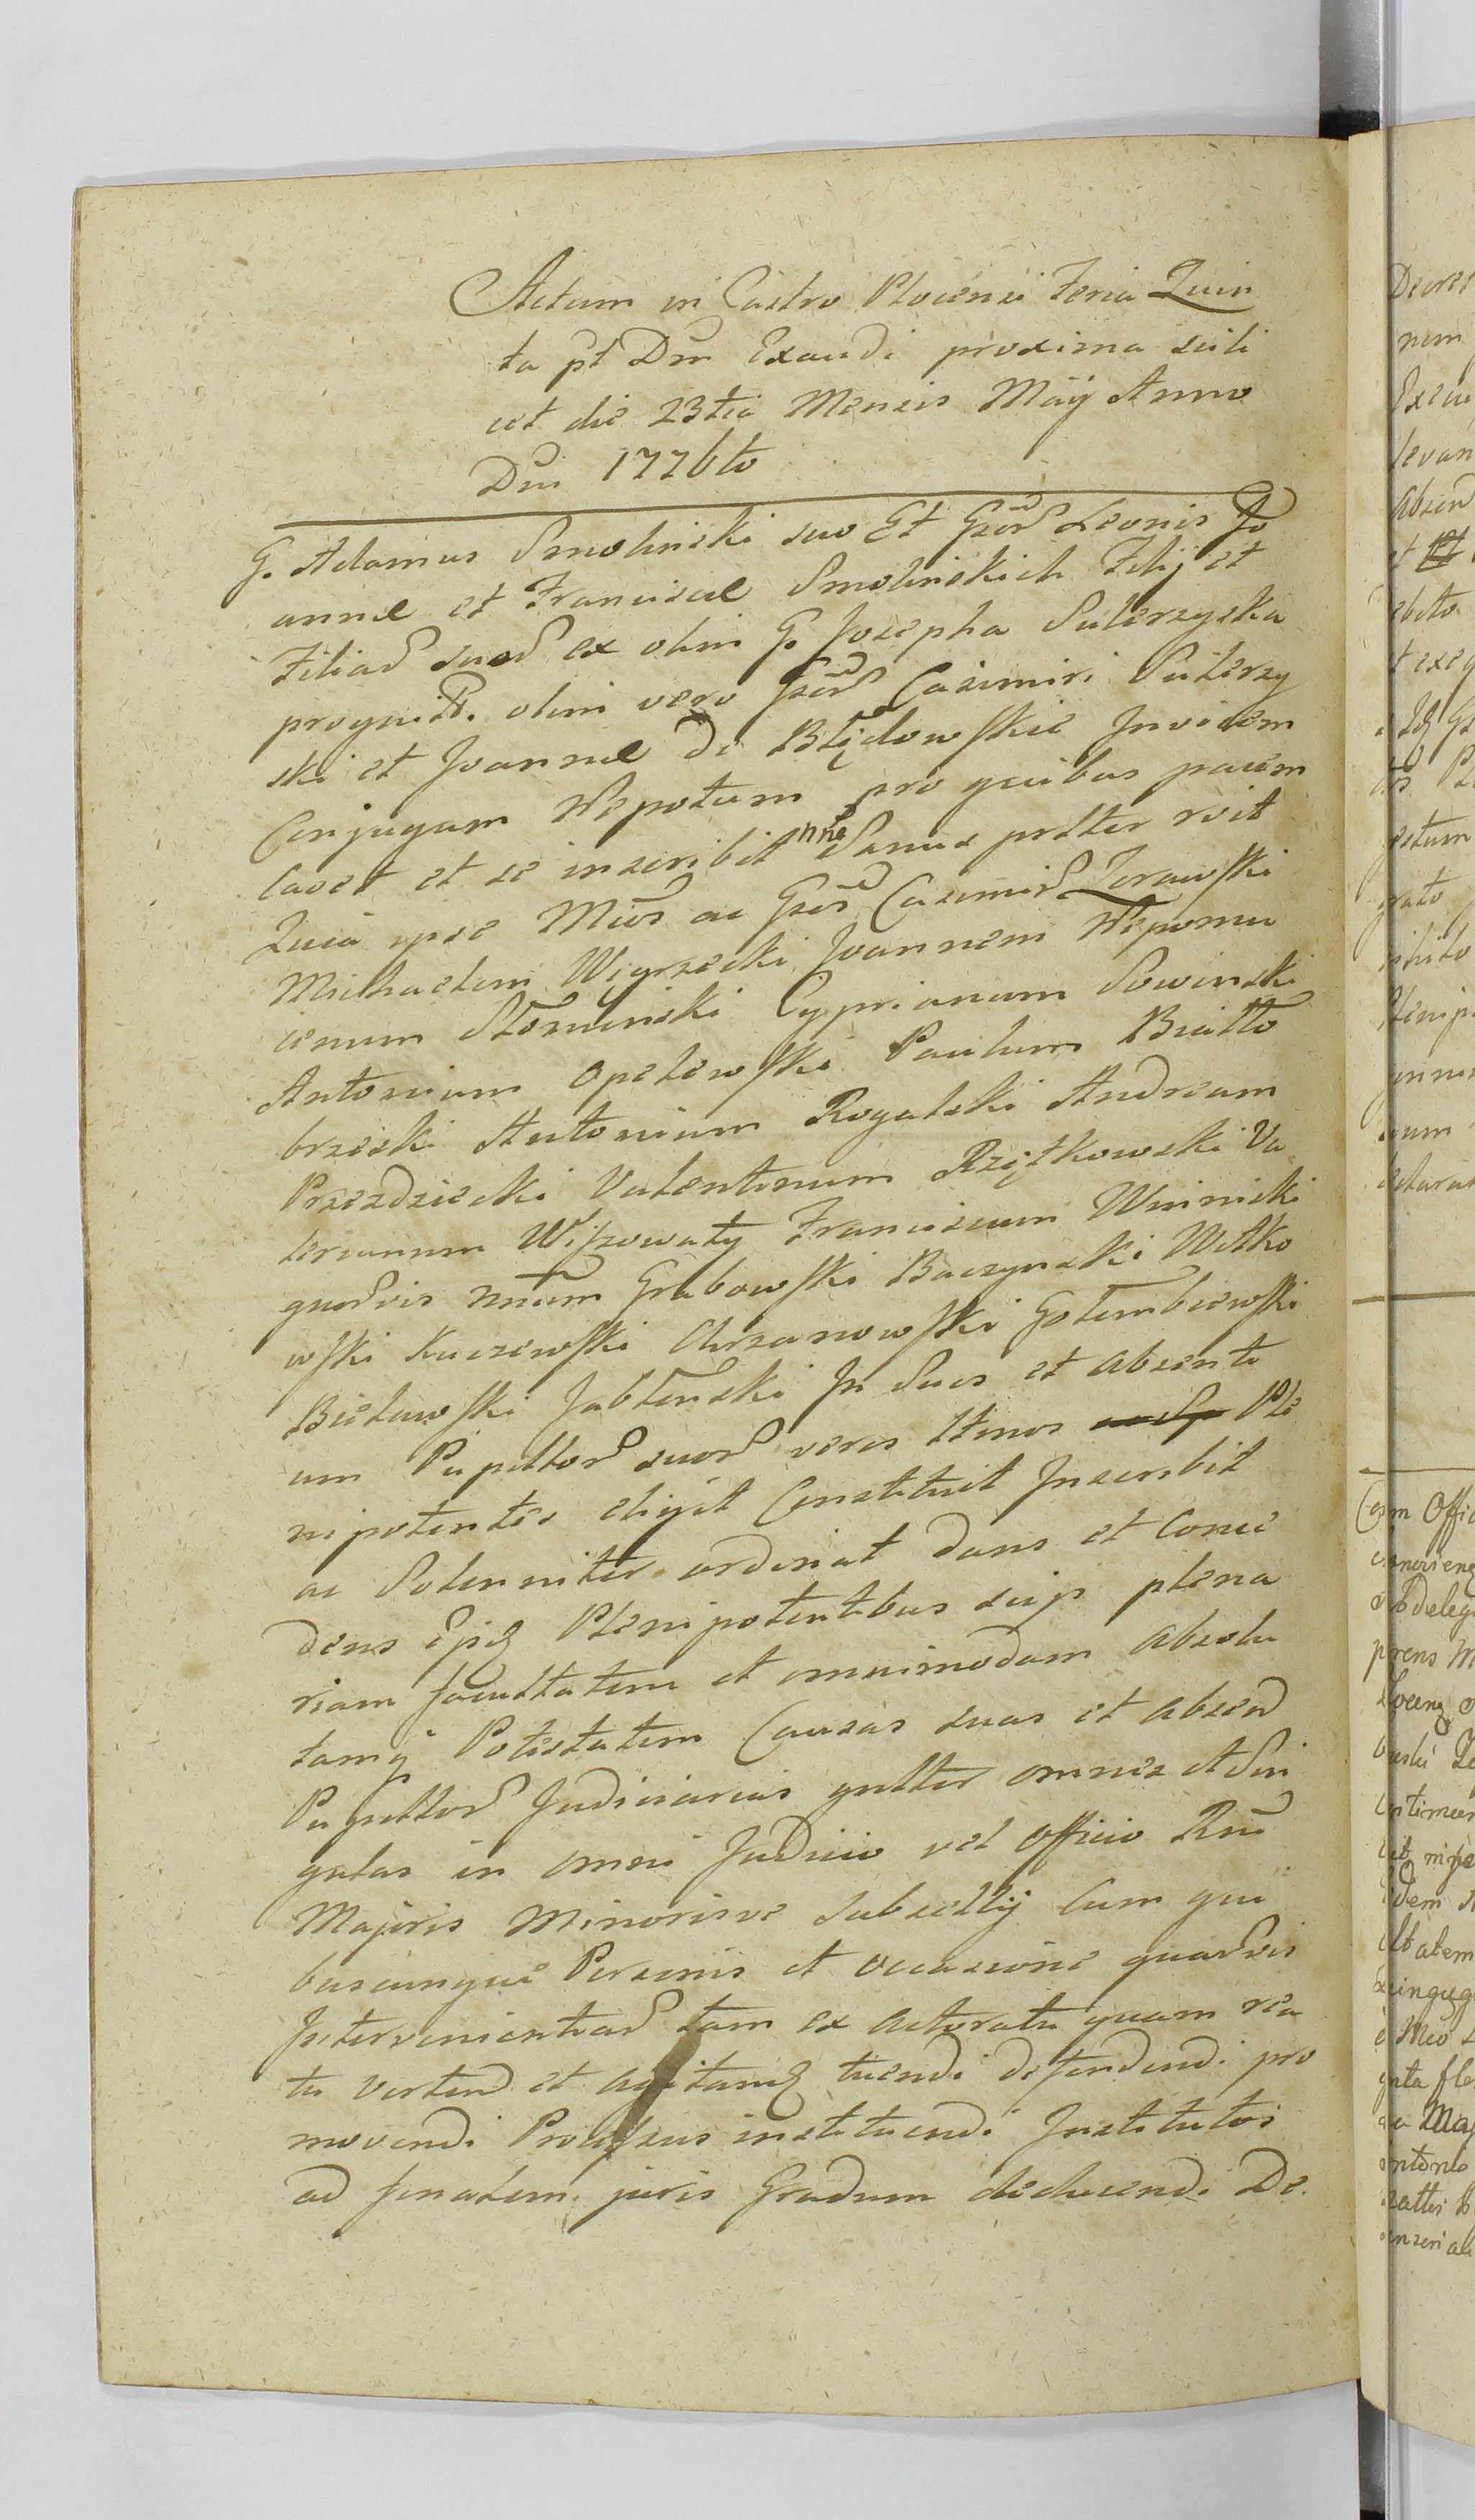 Actum in Castro Plocensi Feria Quin
ta pt Dm Exaudi proxima scili
cet die 23tia Mensis Maij Anno
Dni 1776to
G. Adamus Smolinski suo Et Gsor Leonis Jo
annae et Franciscae Smolinskich Filij et
Filiar suar ex olim G. Josepha Sulerzyska
prognit. olim vero Gsor Casimiri Sulerzy
ski et Joannae de Błędowskie Invicem
Conjugum Nepotum pro quibus pacem
Cavet et se inscribit nne Sanus pstter roit
Quia ipse Micos ac Gsos Casimir Zorawski
Michaelem Węgrzecki Joannem Nepomu
cenum Słominski Cyprianum Sowinski
Antonium Opelewski Paulum Biało
brzeski Antonium Rogalski Andream
Przezdziecki Valentinum Rzętkowski Va
lerianum Wiszowaty Franciscum Winnicki
quorvis nnum Grabowski Baczynski Witko
wski Kuczewski Chrzanowski Gołembiewski
Bielawski Jabłonski In Suos et absenti
um Pupillor suor veros ltimos Ple
nipotentes eligit Constituit Inscribit
ac Solenniter ordinat dans et Conce
dens ijsq Plenipotentibus suis plena
riam facultatem et omnimodam absolu
tamq Potestatem Causas suas et absen
Pupillor Judiciarias gntter omnes et Sin
gulas in omni Judicio vel Officio Rni
Majoris Minorisve Subsellij Cum qui
buscunque Personis et occasione quarvis
Intervenientiar tam ex actoratu quam rea
tu verten et agitan tuendi defendendi pro
movendi Processus instituendi Institutos
ad finalem juris Gradum deducendi De.